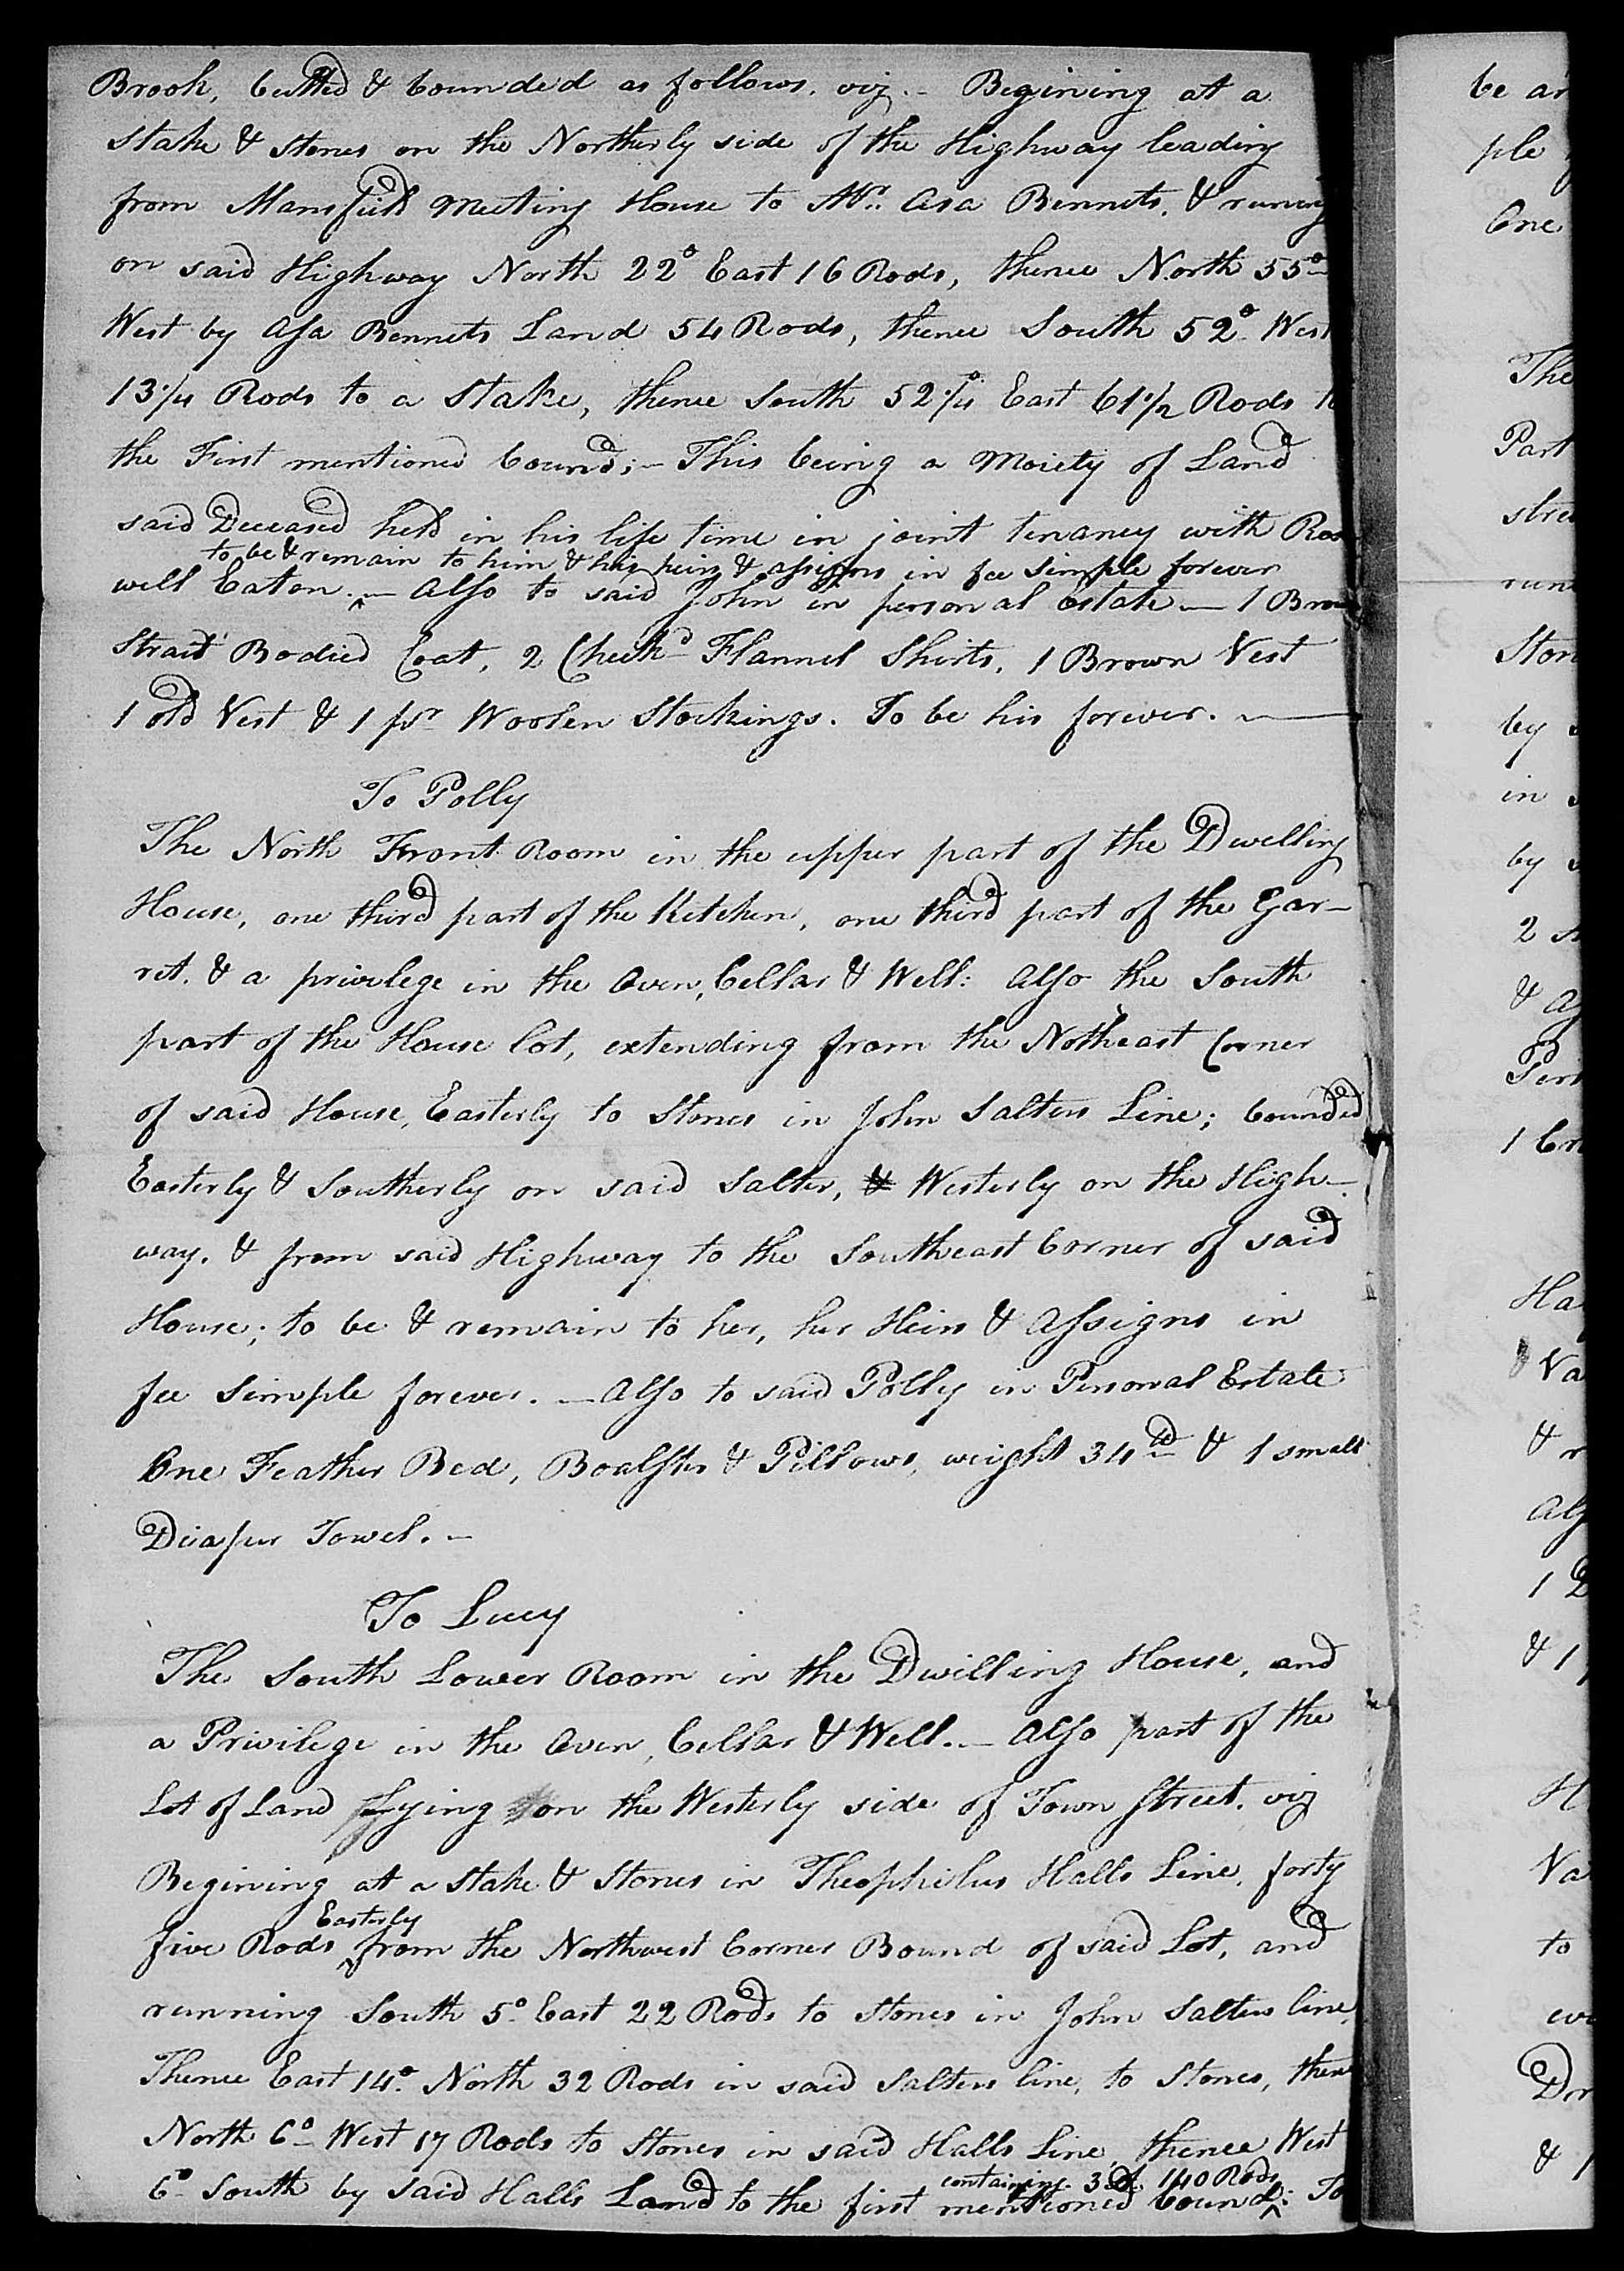 Brook, butted & bounded as follows. viz.- Begining at a
Stake & Stones on the Northerly side of the Highway leading
from Mansfield Meeting House to Mr. Asa Bennets, & runing
on said Highway North 22° East 16 Rods, thence North 55°
West by Asa Bennets Land 54 Rods, thence South 52° West
13 1/4 Rods to a Stake, thence South 52 1/4° East 61 1/2 Rods to
the First mentioned bound;- This being a Moiety of Land
said Deceased held in his life time in joint tenancy with Ros
to be & remain to him & his heirs & assigns in fee simple forever
well Eaton. ^ - Also to said John in personal Estate - 1 Brown
Strait Bodied Coat, 2 Check'd Flannel Shirts, 1 Brown Vest
1 old Vest & 1 pr Woolen Stockings. To be his forever. -
To Polly
The North Front Room in the upper part of the Dwelling
House, one third part of the Kitchen, one third part of the Gar-
ret. & a privilege in the Oven, Cellar & Well: Also the South
part of the House lot, extending from the Notheast Corner
of said House, Easterly to Stones in John Salters Line; bounded
Easterly & Southerly on said Salter, & Westerly on the High-
way. & from said Highway to the Southeast Corner of said
House; to be & remain to her, her Heirs & Assigns in
fee Simple forever. - Also to said Polly in Personal Estate
One Feather Bed, Boalster & Pillows, weight 34 lb & 1 small
Diaper Towel. -
To Lucy
The South Lower Room in the Dwilling House, and
a Privilege in the Oven, Cellar & Well. - Also part of the
Lot of Land Lying on the Westerly side of Town Street. viz
Begining at a Stake & Stones in Theophilus Halls Line, forty
Easterly
five Rods ^ from the Northwest Corner Bound of said Lot, and
running South 5° East 22 Rods to Stones in John Salters line,
Thence East 14° North 32 Rods in said Salters line, to Stones, thence
North 6° West 17 Rods to Stones in said Halls Line, thence West
containing 3 A. 140 Rods
6° South by said Halls Land to the first mentioned bound ^: To
be an
ple
One
The
Part
stre
runi
Ston
by
in
by
2
&
Pers
1
Ha
Va
& r
Als
1
& 1
Va
to
Dr
&